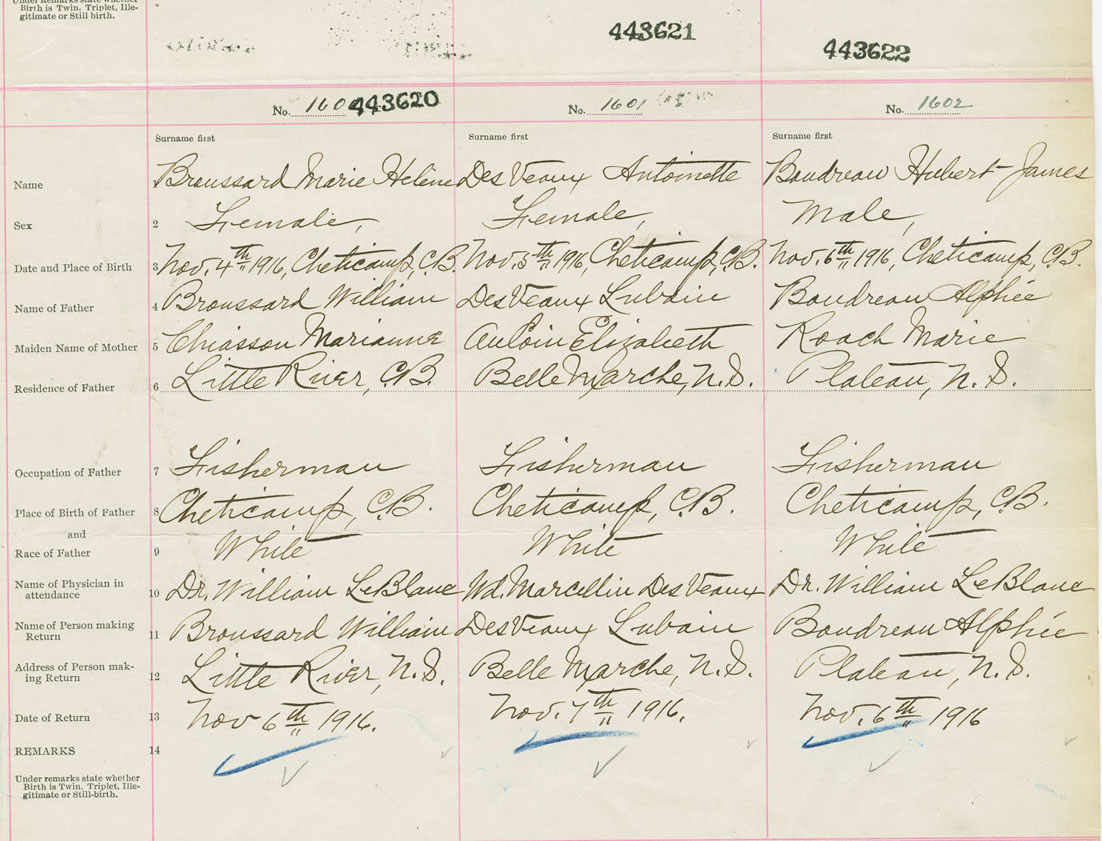 Under Remarks state whether
Birth is Twin, Triplet, Ille-
gitimate or Still birth.
443621
443622
No. 160 443620
No. 1601
No. 1602
Surname first
Surname first
Surname first
Name Broussard Marie Helene DesVeaux Antoinette Boudreau Hubert-James
Sex 2 Female, Female, Male,
Date and Place of Birth 3 Nov. 4th 1916, Cheticamp, C.B. Nov. 5th 1916, Cheticamp, C.B. Nov. 6th 1916, Cheticamp, C.B.
Name of Father 4 Broussard William DesVeaux Lubain Boudreau Alphée
Maiden Name of Mother 5 Chiasson Marianne AuCoin Elizabeth Roach Marie
Residence of Father 6 Little River, C.B. Belle Marche, N.S. Plateau, N.S.
Occupation of Father 7 Fisherman Fisherman Fisherman
Place of Birth of Father 8 Cheticamp, C.B. Cheticamp, C.B. Cheticamp, C.B.
and
Race of Father 9 White White White
Name of Physician in
attendance 10 Dr. William LeBlanc Wd. Marcellin DesVeaux Dr. William LeBlanc
Name of Person making
Return 11 Broussard William DesVeaux Lubain Boudreau Alphée
Address of Person mak-
ing Return 12 Little River, N.S. Belle Marche, N.S. Plateau, N.S.
Date of Return 13 Nov 6th 1916. Nov. 7th 1916. Nov. 6th 1916
REMARKS 14
Under remarks state whether
Birth is Twin, Triplet, Ille-
gitimate or Still-birth.